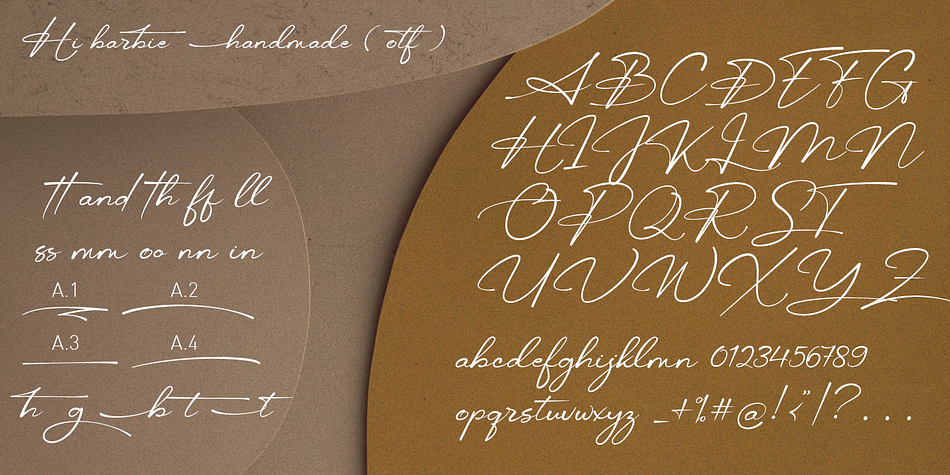 Hi barbie handmade ( otf )
tt and th ff ll
ss mm oo nn in
A.1 A.2
A.3 A.4
h g b t t
A B C D E F G
H I J K L M N
O P Q R S T
U V W X Y Z
abcdefghijklmn 0123456789
opqrstuvwxyz _+%#@!<"/?...